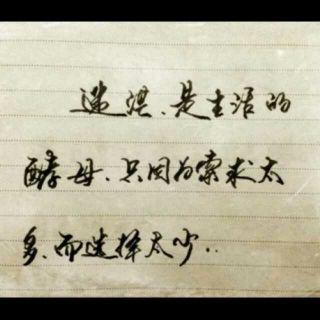 迷淇、是生活的
酵母、只因为索求太
多、而选择太少..